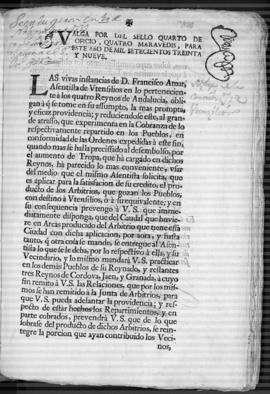 VALGA POR DEL SELLO QUARTO DE
OFICIO, QUATRO MARAVEDIS, PARA
ESTE AÑO DE MIL SETECIENTOS TREINTA
Y NUEVE.
LAS vivas instancias de D. Francisco Arnaz,
Asentista de Vtensilios en lo pertenecien-
te à los quatro Reynos de Andalucia, obligan
à q̃ se tome en su assumpto, la mas prompta,
y eficaz providencia; y reduciendose este, al gran-
de atrasso, que experimenta en la Cobranza de lo
respectivamente repartido en los Pueblos, en
conformidad de las Ordenes expedidas à este fin,
quando mas se halla precisado al desembolso, por
el aumento de Tropa, que hà cargado en dichos
Reynos, hà parecido lo mas conveniente, vsar
del medio que el mismo Asentista solicita, que
es aplicar para la satisfacion de su credito, el pro-
ducto de los Arbitrios, que gozan los Pueblos,
con destino à Vtensilios, ò à su equivalente; y en
su consequencia prevengo à V. S. que imme-
diatamente disponga, que del Caudal que huvie-
re en Arcas producido del Arbitrio que tiene essa
Ciudad con dicha aplicacion, por aora, y hasta
tanto, q̃ otra cosa se mande, se entregue al Asen-
tista lo que se le deba, por lo respectivo à ella, y su
Vecindario, y lo mismo mandarà V. S. practicar
en los demàs Pueblos de su Reynado, y restantes
tres Reynos de Cordova, Jaen, y Granada, à cuyo
fin remito à V. S. las Relaciones, que por los mis-
mos se han remitido à la Junta de Arbitrios, para
que V. S. pueda adelantar la providencia; y res-
pecto de estàr hechos los Repartimientos, y en
parte cobrados, prevendrà V. S. que de lo que
sobrase del producto de dichos Arbitrios, se rein-
tegre la porcion que ayan contribuido los Veci-
nos,